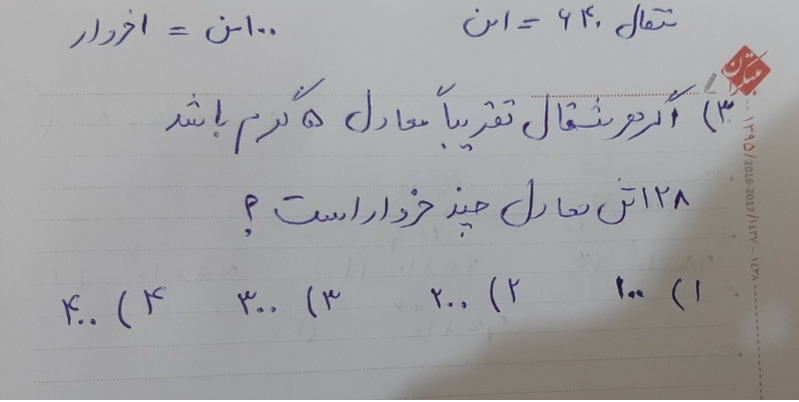 مثقال ۶۴۰ = ۱من
۱۰۰من = ۱خروار
۳) اگر هر مثقال تقریباً معادل ۵ گرم باشد
۱۲۸تن معادل چند خروار است ؟
۱) ۱۰۰ ۲) ۲۰۰ ۳) ۳۰۰ ۴) ۴۰۰
مبتکران
۱۳۹۵/2016-2017/۱۴۳۷-۱۴۳۸